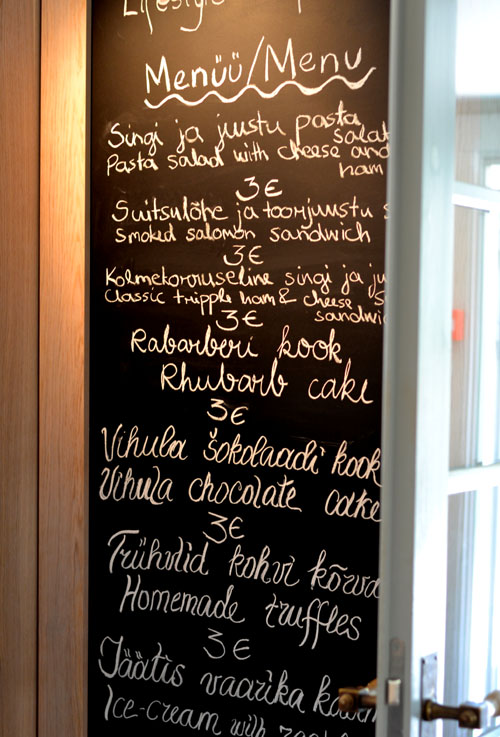 Lifestyle
Menüü/Menu
Singi ja juustu pasta
salat
Pasta salad with cheese and
ham
3€
Suitsulõhe ja toorjuustu s
Smoked salomon sandwich
3€
Kolmekorruseline singi ja ju
Classic tripple ham & cheese s
sandwic
3€
Rabarberi kook
Rhubarb cake
3€
Vihula šokolaadi kook
Vihula chocolate cake
3€
Trühvlid kohvi kõrva
Homemade truffles
3€
Jäätis vaarika
Ice-cream with